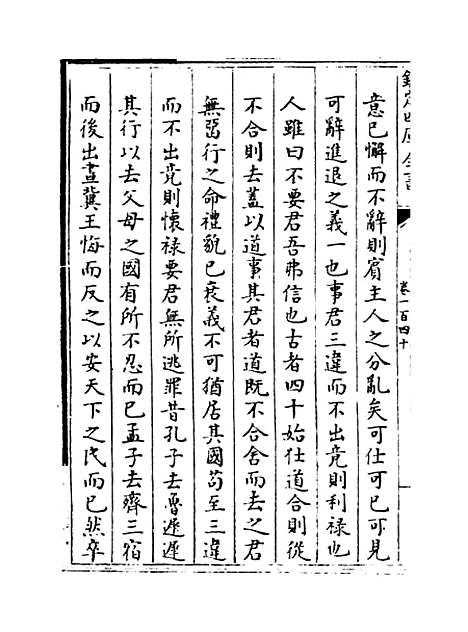 欽定四庫全書
卷一百四十
意已懈而不辭則賓主人之分亂矣可仕可已可見
可辭進退之義一也事君三違而不出竟則利祿也
人雖曰不要君吾弗信也古者四十始仕道合則從
不合則去蓋以道事其君者道既不合舍而去之君
無罶行之命禮貌已衰義不可猶居其國茍至三違
而不出竟則懷祿要君無所逃罪昔孔子去魯遲遲
其行以去父母之國有所不忍而已孟子去齊三宿
而後出晝冀王悔而反之以安天下之民而已然卒